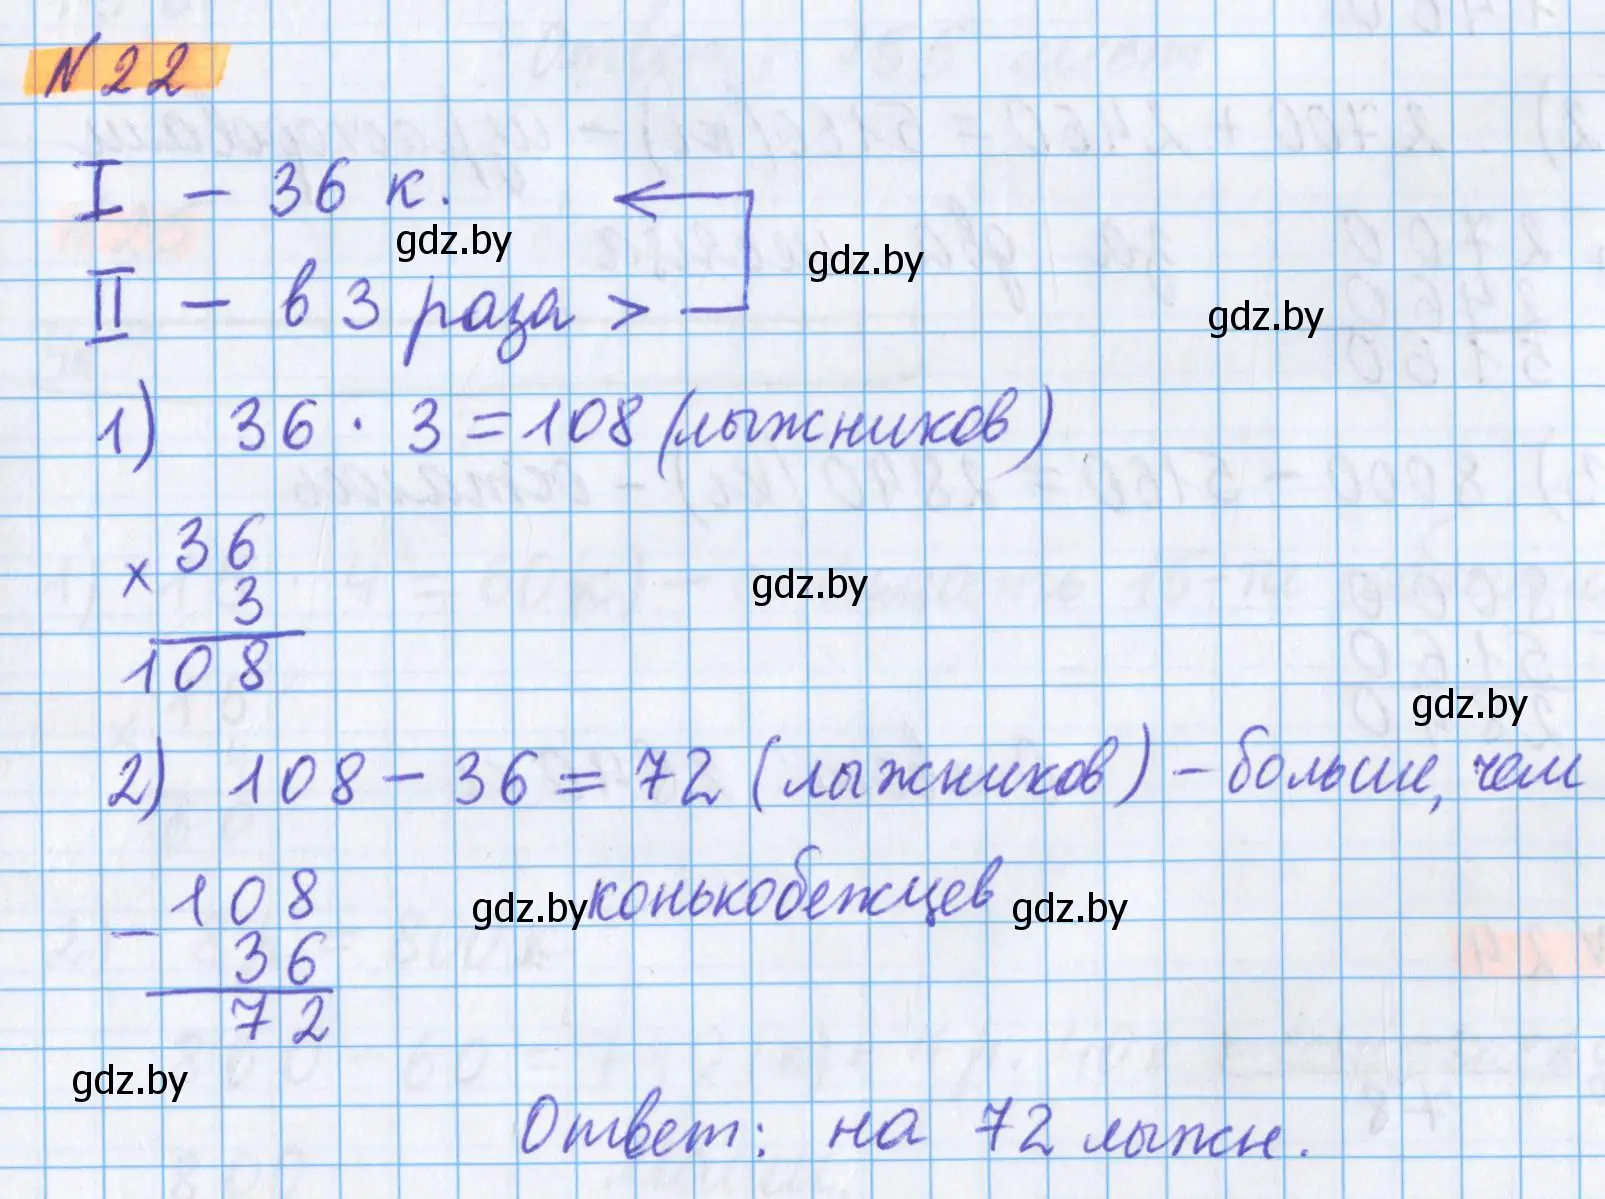 N 22
I – 36 к.
gdz.by
gdz.by
II – в 3 раза >
gdz.by
1) 36 · 3 = 108 (лыжников)
× 36
3
108
gdz.by
gdz.by
2) 108 – 36 = 72 (лыжников) – больше, чем
конькобежцев
gdz.by
gdz.by
– 108
36
72
gdz.by
Ответ: на 72 лыжн.